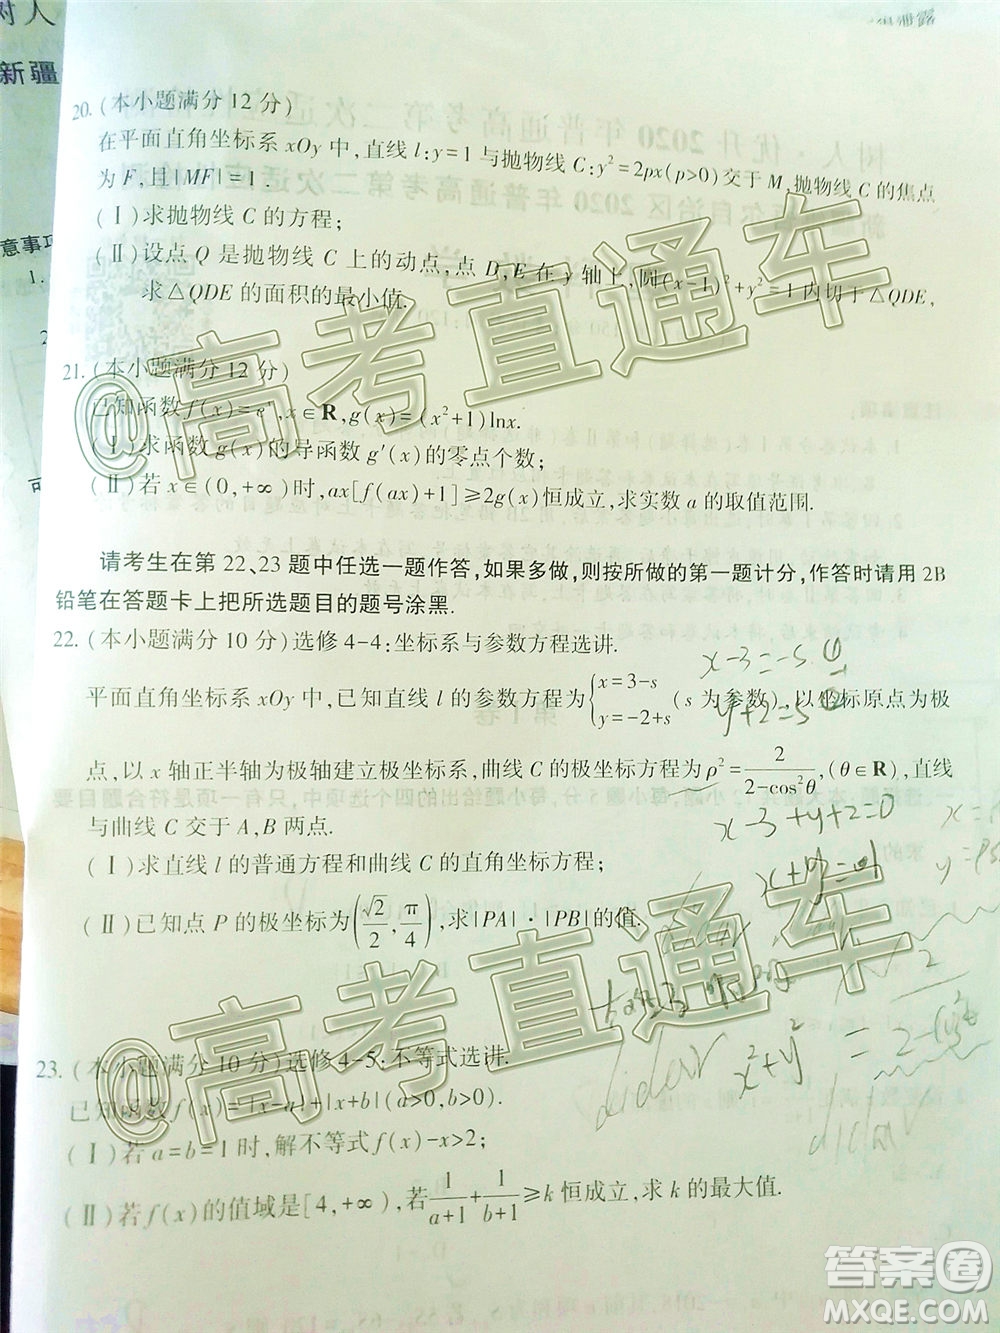 树人
新疆
意事项
1.
2
20. (本小题满分 12 分)
在平面直角坐标系 xOy 中,直线 l:y=1 与抛物线 C:y²=2px(p>0)交于 M,抛物线 C 的焦点
为 F,且|MF|=1.
(Ⅰ)求抛物线 C 的方程;
(Ⅱ)设点 Q 是抛物线 C 上的动点,点 D,E 在 y 轴上,圆(x-1)²+y²=1 内切于△QDE,
求△QDE 的面积的最小值.
21. (本小题满分 12 分)
已知函数f(x)=eˣ,x∈R,g(x)=(x²+1)lnx.
(Ⅰ)求函数 g(x)的导函数 g′(x)的零点个数;
(Ⅱ)若 x∈(0,+∞)时,ax[f(ax)+1]≥2g(x)恒成立,求实数 a 的取值范围.
请考生在第 22、23 题中任选一题作答,如果多做,则按所做的第一题计分,作答时请用 2B
铅笔在答题卡上把所选题目的题号涂黑.
22. (本小题满分 10 分)选修 4-4:坐标系与参数方程选讲.
平面直角坐标系 xOy 中,已知直线 l 的参数方程为{x=3-s y=-2+s (s 为参数),以坐标原点为极
点,以 x 轴正半轴为极轴建立极坐标系,曲线 C 的极坐标方程为 ρ²=2/(2-cos²θ),(θ∈R),直线
与曲线 C 交于 A,B 两点.
(Ⅰ)求直线 l 的普通方程和曲线 C 的直角坐标方程;
(Ⅱ)已知点 P 的极坐标为(√2/2,π/4),求|PA|·|PB|的值.
x-3=-s ①
y+2=s ②
x-3+y+2=0
x+y=1
x²+y² = 2/(2-cos²
23. (本小题满分 10 分)选修 4-5:不等式选讲.
已知函数f(x)=|x-a|+|x+b|(a>0,b>0).
(Ⅰ)若 a=b=1 时,解不等式 f(x)-x>2;
(Ⅱ)若f(x)的值域是[4,+∞),若1/(a+1)+1/(b+1)≥k 恒成立,求 k 的最大值.
@高考直通车
@高考直通车
答案圈
MXQE.COM